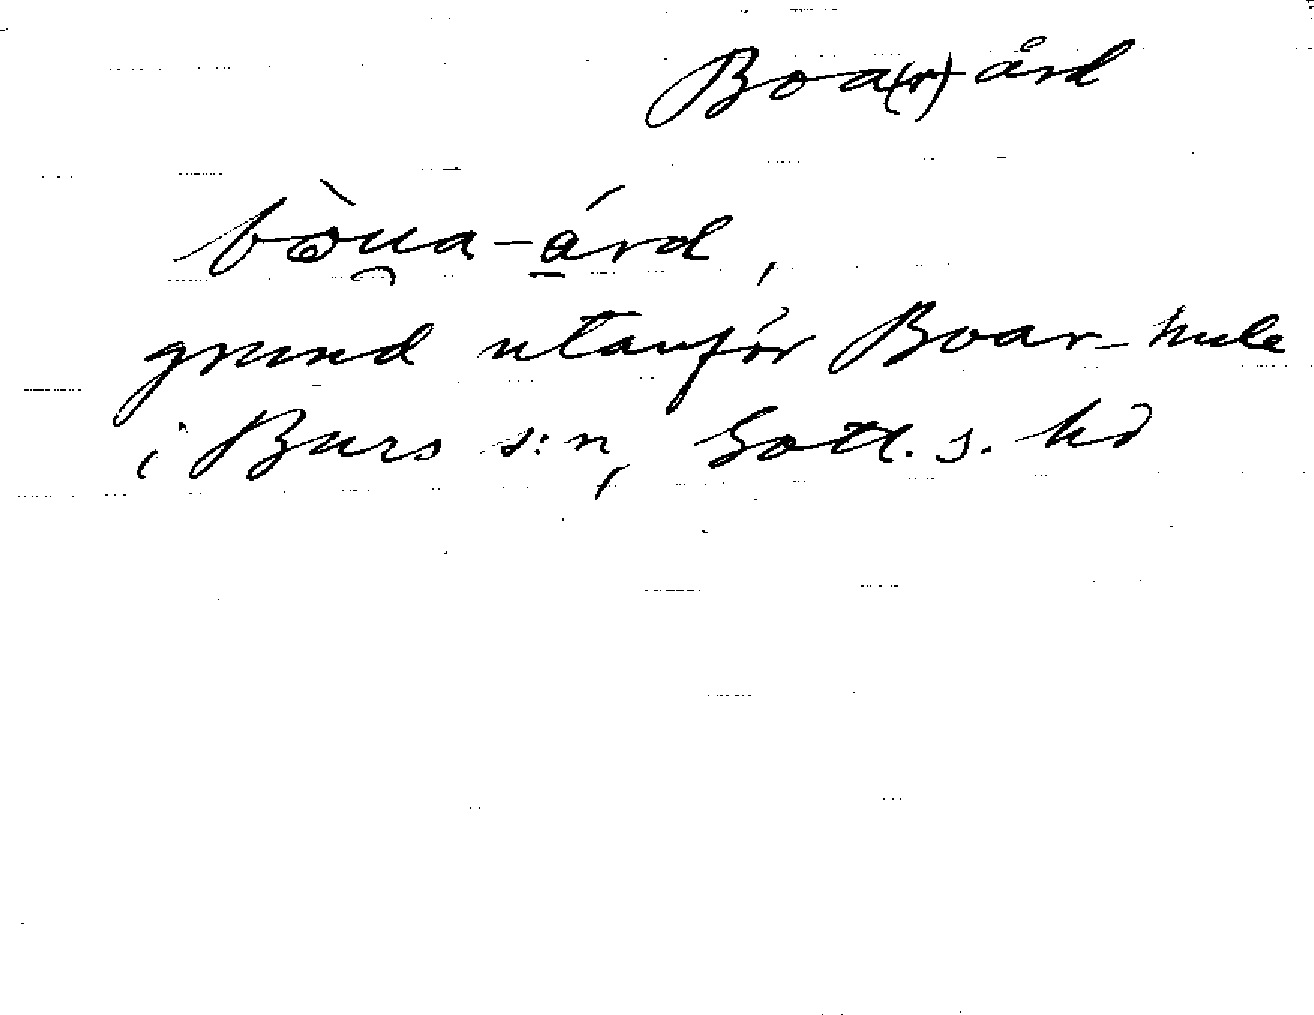 Boa(r)-ård
bòu̯a-á̱rd,
grund utanför Boar-hule
i Burs s:n, Gotl. s. hd